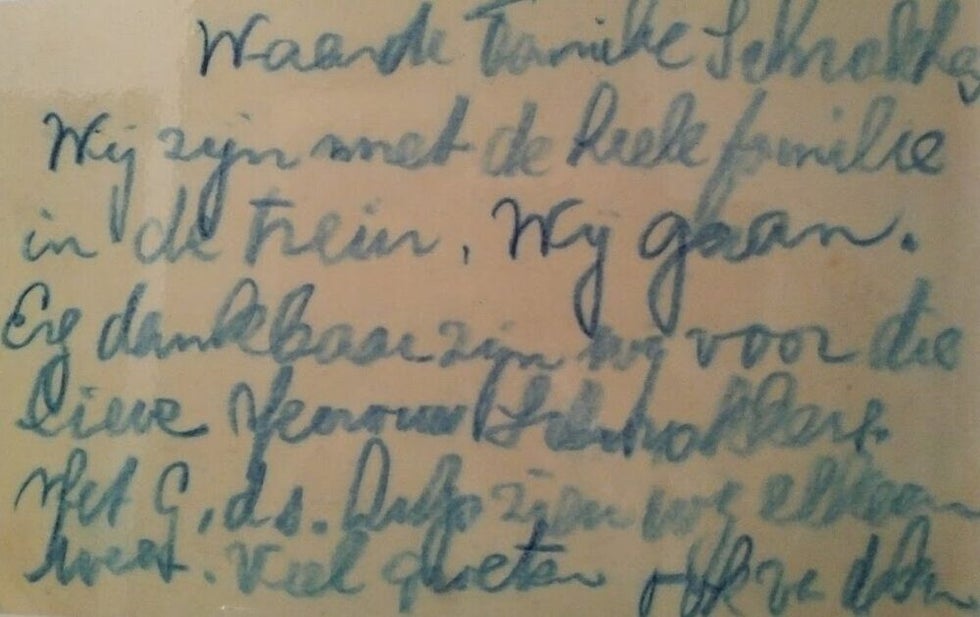 Waarde Familie
Wij zijn met de heele familie
in de trein. Wij gaan.
Erg dankbaar zijn wij voor die
lieve Mevrouw
Met G.ds. hulp zien wij elkaar
weer. Veel groeten